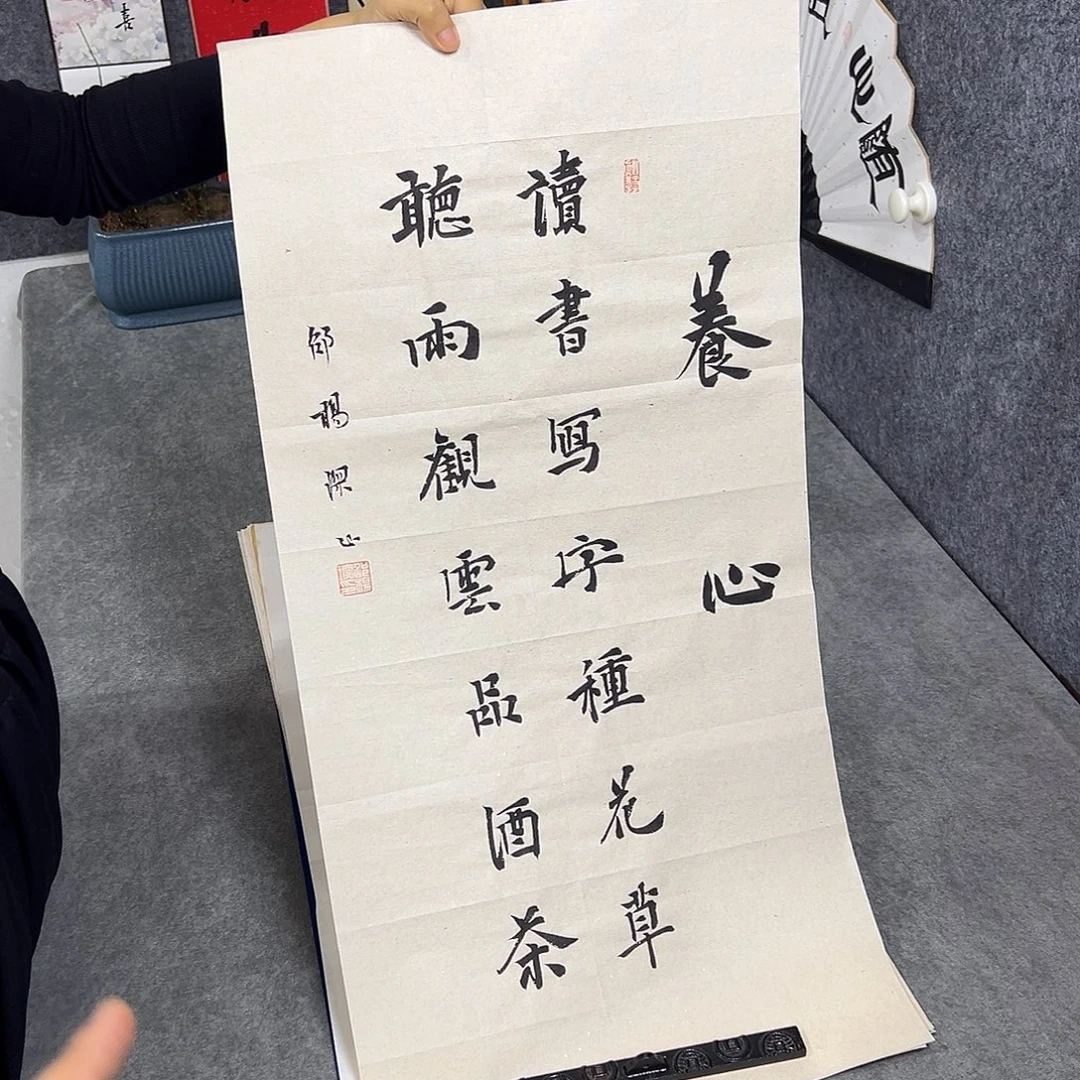 養心
讀書寫字種花草
聽雨觀雲品酒茶
喜